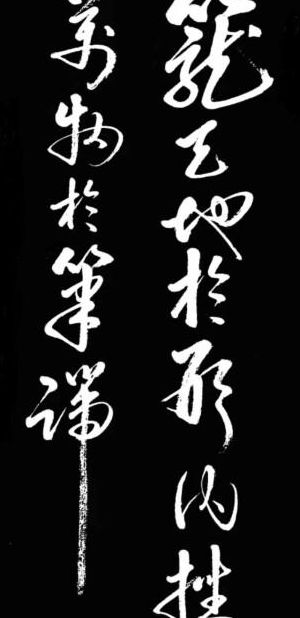 籠天地於形內挫
萬物於筆端